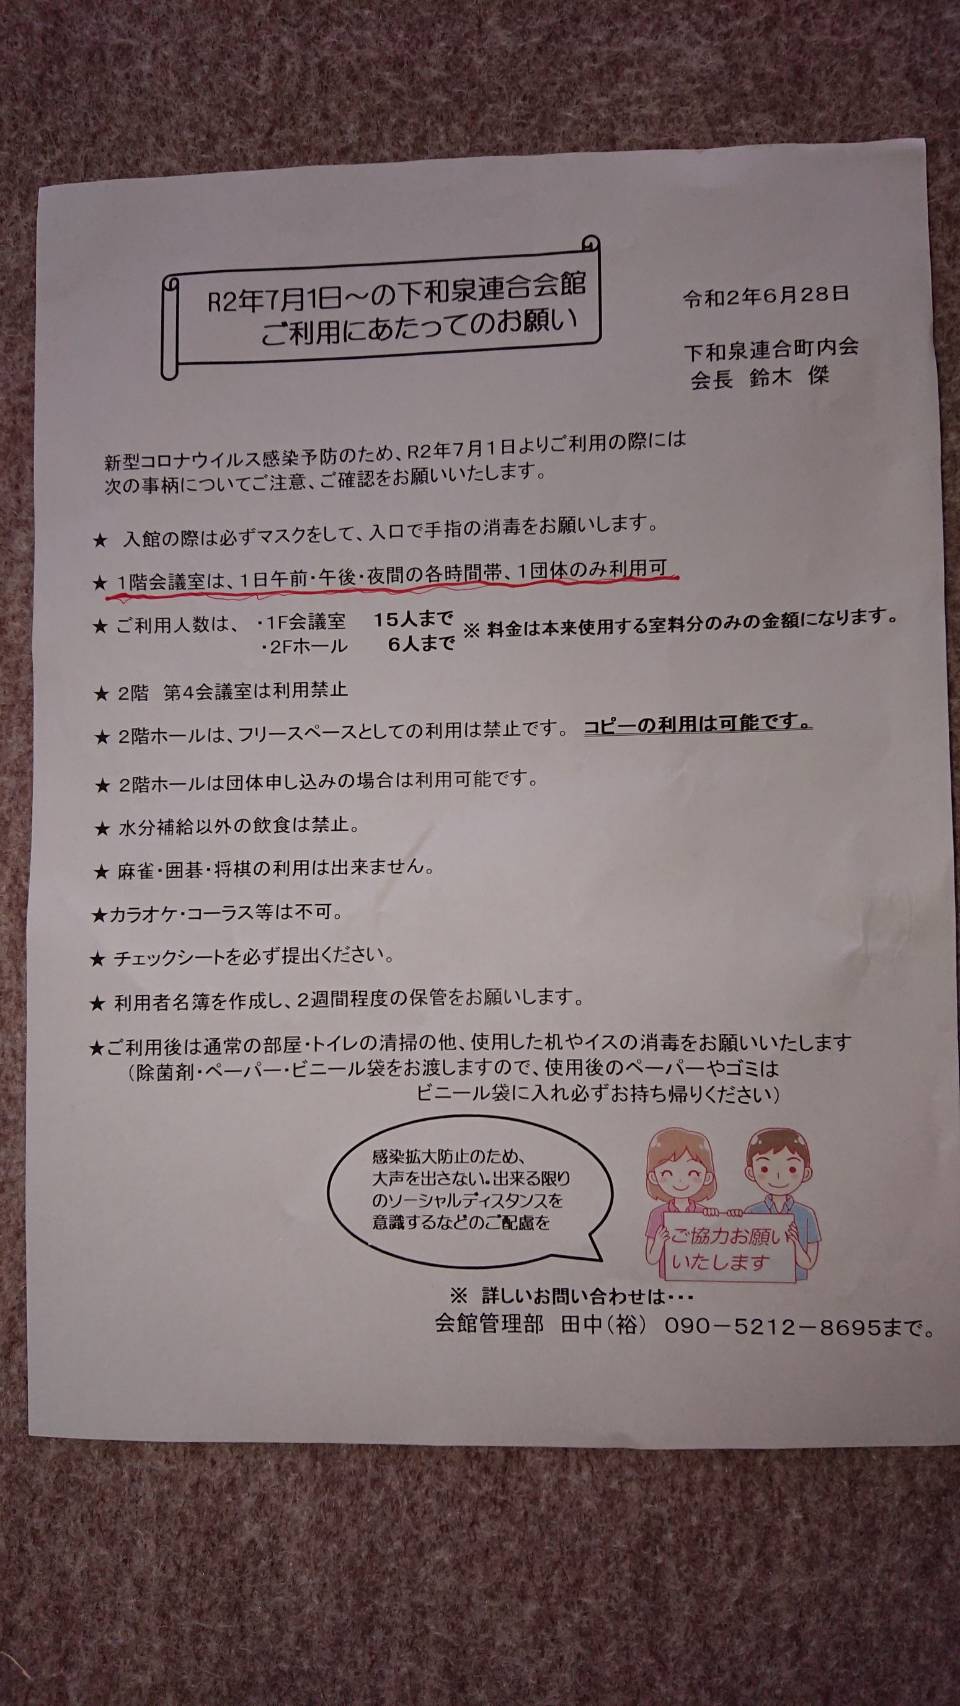 R2年7月1日～の下和泉連合会館
ご利用にあたってのお願い
令和2年6月28日
下和泉連合町内会
会長　鈴木　傑
新型コロナウイルス感染予防のため、R2年7月1日よりご利用の際には
次の事柄についてご注意、ご確認をお願いいたします。
★　入館の際は必ずマスクをして、入口で手指の消毒をお願いします。
★ 1階会議室は、1日午前・午後・夜間の各時間帯、1団体のみ利用可
★ ご利用人数は、　・1F会議室　15人まで　※ 料金は本来使用する室料分のみの金額になります。
・2Fホール　6人まで
★ 2階　第4会議室は利用禁止
★ 2階ホールは、フリースペースとしての利用は禁止です。　コピーの利用は可能です。
★ 2階ホールは団体申し込みの場合は利用可能です。
★ 水分補給以外の飲食は禁止。
★ 麻雀・囲碁・将棋の利用は出来ません。
★カラオケ・コーラス等は不可。
★ チェックシートを必ず提出ください。
★ 利用者名簿を作成し、2週間程度の保管をお願いします。
★ご利用後は通常の部屋・トイレの清掃の他、使用した机やイスの消毒をお願いいたします
（除菌剤・ペーパー・ビニール袋をお渡しますので、使用後のペーパーやゴミは
ビニール袋に入れ必ずお持ち帰りください）
感染拡大防止のため、
大声を出さない。出来る限り
のソーシャルディスタンスを
意識するなどのご配慮を
ご協力お願い
いたします
※　詳しいお問い合わせは・・・
会館管理部　田中（裕）　090－5212－8695まで。